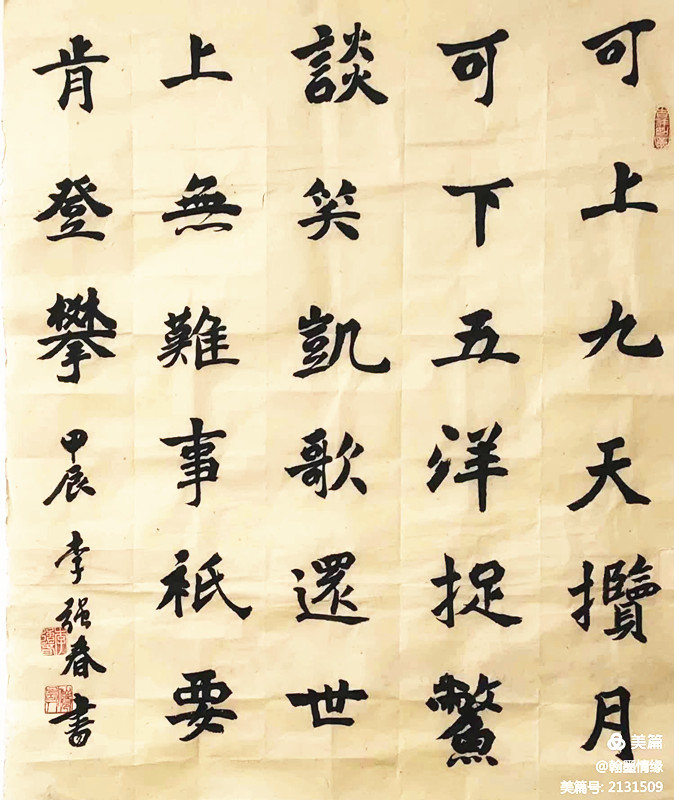 可上九天攬月
可下五洋捉鱉
談笑凱歌還世
上無難事祇要
肯登攀
甲辰 李强春書
美篇
@翰墨情缘
美篇号: 2131509